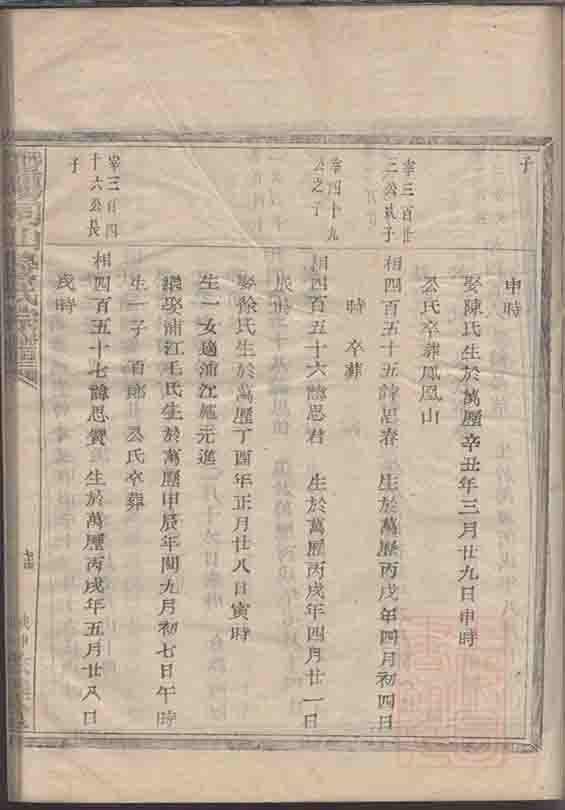 子
申時
娶陳氏生於萬歷辛丑年三月廿九日申時
公氏卒葬鳳凰山
宰三百廿
三公次子
相四百五十五諱思春 生於萬歷丙戌年四月初四日
時 卒葬
宰四十九
公之子
相四百五十六諱思君 生於萬歷丙戌年四月廿一日
娶徐氏生於萬歷丁酉年正月廿八日寅時
生一女適浦江 元進
繼娶浦江毛氏生於萬歷甲辰年閏九月初七日午時
生一子 百郎 公氏卒葬
宰三百四
十六公長
子
相四百五十七諱思賓 生於萬歷丙戌年五月廿八日
戌時
氏宗譜